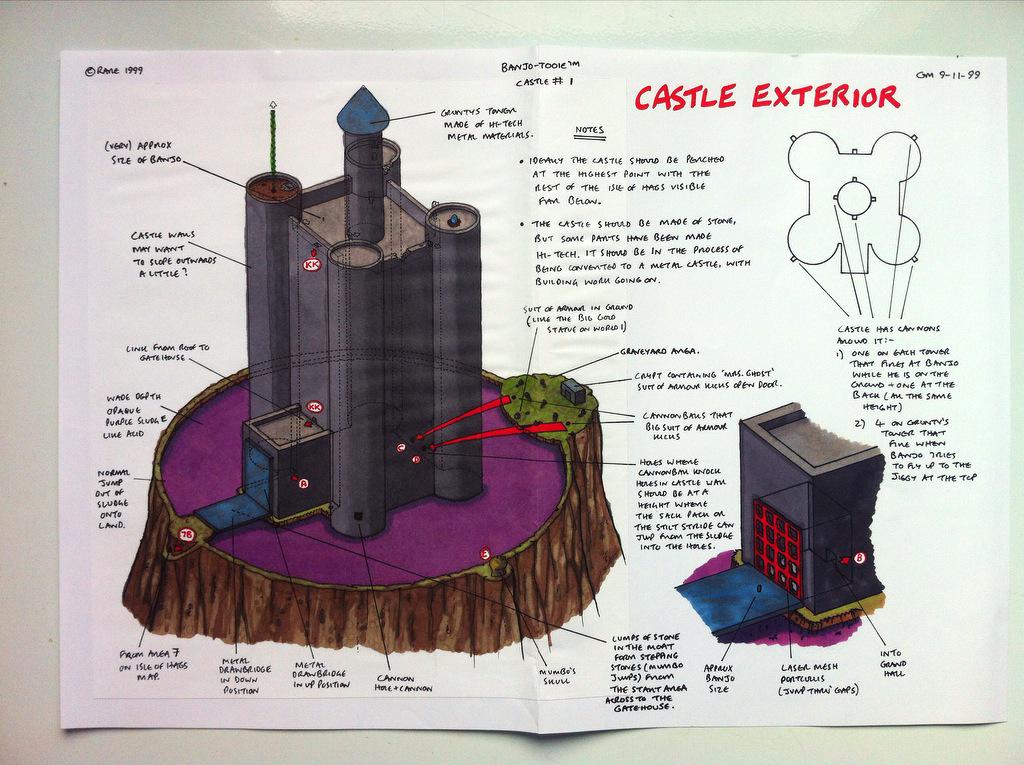 © RARE 1999
BANJO-TOOIE™
CASTLE # 1
GM 9-11-99
CASTLE EXTERIOR
(VERY) APPROX
SIZE OF BANJO
GRUNTY'S TOWER
MADE OF HI-TECH
METAL MATERIALS.
NOTES
• IDEALLY THE CASTLE SHOULD BE PERCHED
AT THE HIGHEST POINT WITH THE
REST OF THE ISLE OF HAGS VISIBLE
FAR BELOW.
• THE CASTLE SHOULD BE MADE OF STONE,
BUT SOME PARTS HAVE BEEN MADE
HI-TECH. IT SHOULD BE IN THE PROCESS OF
BEING CONVERTED TO A METAL CASTLE, WITH
BUILDING WORK GOING ON.
CASTLE WALLS
MAY WANT
TO SLOPE OUTWARDS
A LITTLE?
KK
SUIT OF ARMOUR IN GROUND
(LIKE THE BIG GOLD
STATUE ON WORLD 1)
CASTLE HAS CANNONS
AROUND IT:-
1) ONE ON EACH TOWER
THAT FIRES AT BANJO
WHILE HE IS ON THE
GROUND + ONE AT THE
BACK (ALL THE SAME
HEIGHT)
2) 4 ON GRUNTY'S
TOWER THAT
FIRE WHEN
BANJO TRIES
TO FLY UP TO THE
JIGGY AT THE TOP
LINK FROM ROOF TO
GATEHOUSE
GRAVEYARD AREA.
CRYPT CONTAINING 'MRS. GHOST'
SUIT OF ARMOUR KICKS OPEN DOOR.
WADE DEPTH
OPAQUE
PURPLE SLUDGE
LIKE ACID
KK
CANNONBALLS THAT
BIG SUIT OF ARMOUR
KICKS
C
D
HOLES WHERE
CANNONBALL KNOCK
HOLES IN CASTLE WALL
SHOULD BE AT A
HEIGHT WHERE
THE SACK PACK OR
THE STILT STRIDE CAN
JUMP FROM THE SLUDGE
INTO THE HOLES.
NORMAL
JUMP
OUT OF
SLUDGE
ONTO
LAND.
A
7B
E
B
FROM AREA 7
ON ISLE OF HAGS
MAP.
METAL
DRAWBRIDGE
IN DOWN
POSITION
METAL
DRAWBRIDGE
IN UP POSITION
CANNON
HOLE + CANNON
MUMBO'S
SKULL
LUMPS OF STONE
IN THE MOAT
FORM STEPPING
STONES (MUMBO
JUMPS) FROM
THE START AREA
ACROSS TO THE
GATEHOUSE.
APPROX
BANJO
SIZE
LASER MESH
PORTCULLIS
(JUMP THRU' GAPS)
INTO
GRAND
HALL